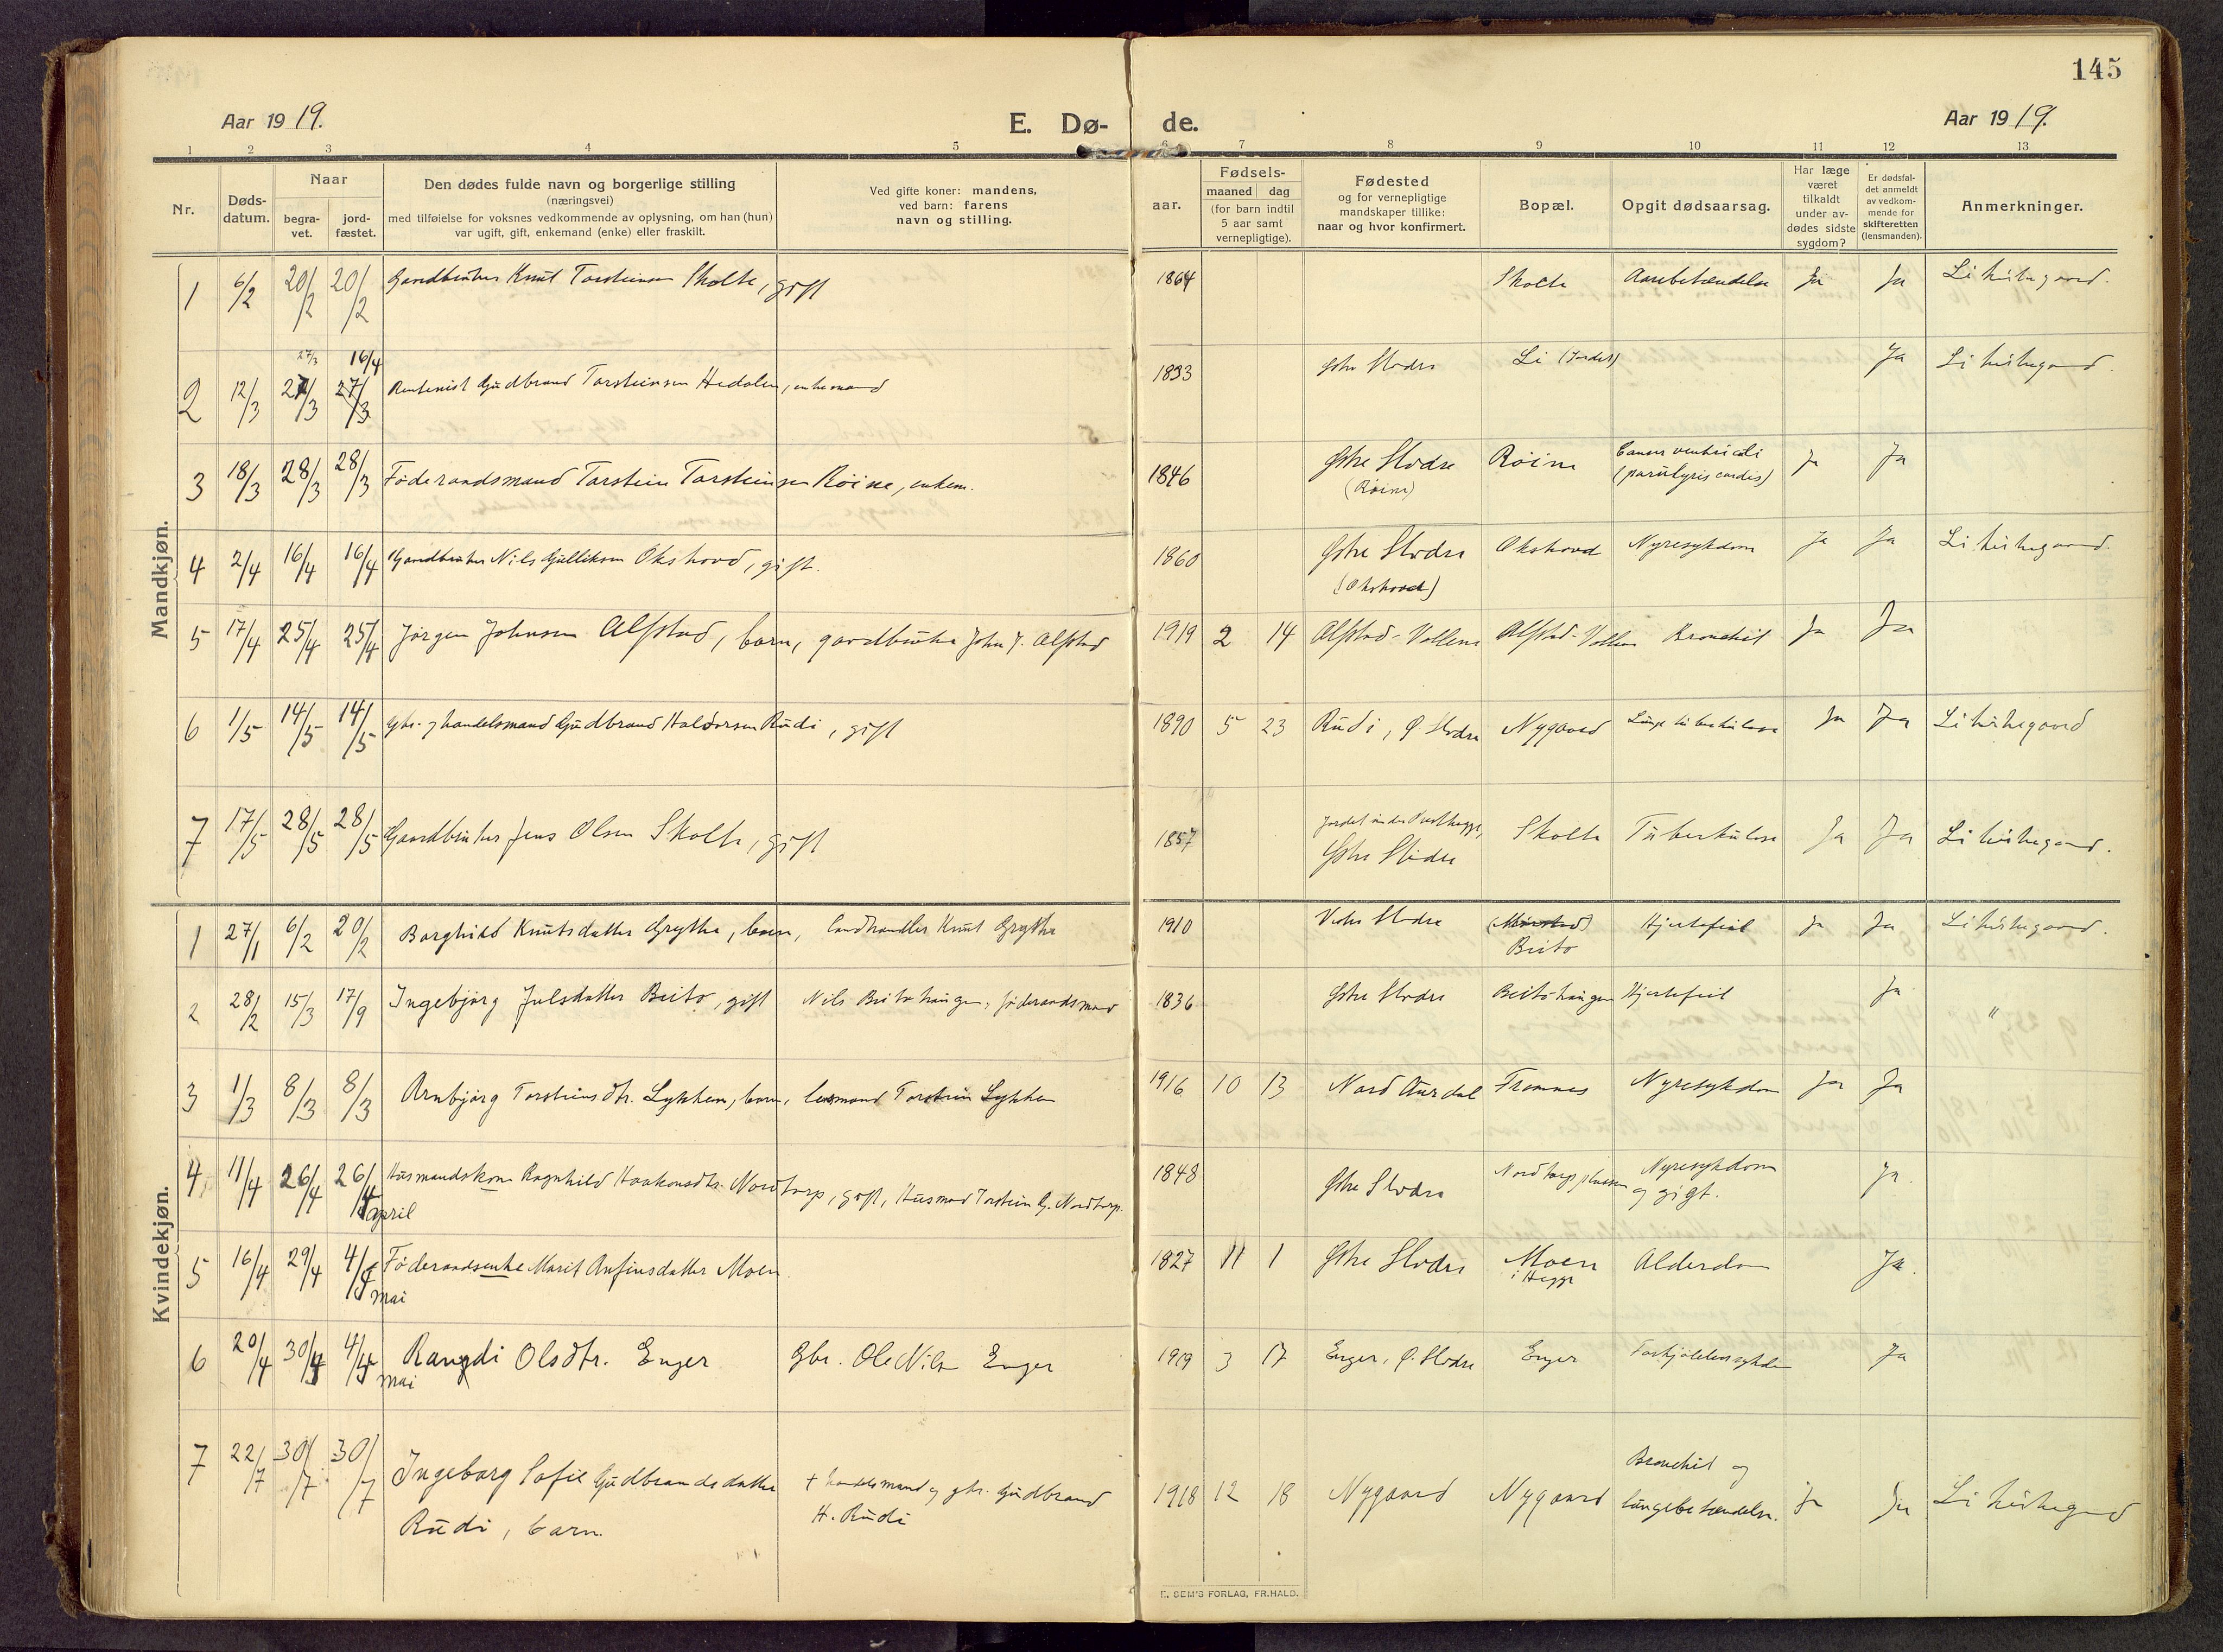 145
Aar 1919.
E. Dø- de.
Aar 1919.
1 2 3 4 5 6 7 8 9 10 11 12 13
Nr.
Døds-
datum.
Naar
begra-
vet.
jord-
fæstet.
Den dødes fulde navn og borgerlige stilling
(næringsvei)
med tilføielse for voksnes vedkommende av oplysning, om han (hun)
var ugift, gift, enkemand (enke) eller fraskilt.
Ved gifte koner: mandens,
ved barn: farens
navn og stilling.
aar.
Fødsels-
maaned dag
(for barn indtil
5 aar samt
vernepligtige).
Fødested
og for vernepligtige
mandskaper tillike:
naar og hvor konfirmert.
Bopæl.
Opgit dødsaarsag.
Har læge
været
tilkaldt
under av-
dødes sidste
sygdom?
Er dødsfal-
det anmeldt
av vedkom-
mende for
skifteretten
(lensmanden).
Anmerkninger.
Mandkjøn.
1 6/2 20/2 20/2 Gardbruker Knut Torsteinsen Skolte, gift 1864 Skolte Aarebetændelse Ja Ja Li kirkegaard.
27/3 16/4
2 12/3 27/3 27/3 Rentenist Gudbrand Torsteinsen Hedalen, enkemand 1833 Østre Slidre Li (Jordet) Ja Li kirkegaard.
3 18/3 28/3 28/3 Føderaadsmand Torstein Torsteinsen Røine, enkem. 1846 Østre Slidre Røine Cancer ventriculi Ja Ja
(Røine) (paralysis cordis)
4 2/4 16/4 16/4 Gardbruker Nils Gulliksen Okshovd, gift. 1860 Østre Slidre Okshovd Nyresykdom Ja Ja Li kirkegaard.
(Okshovd)
5 17/4 25/4 25/4 Jørgen Johnsen Alfstad, barn, gardbruker John J. Alfstad 1919 2 14 Alfstad-Vollene Alfstad-Vollene Bronchit Ja Ja
6 1/5 14/5 14/5 Gbr. og handelsmand Gudbrand Haldorsen Rudi, gift 1890 5 23 Rudi, Ø. Slidre Nygaard Lungetuberkulose Ja Ja Li kirkegaard
7 17/5 28/5 28/5 Gaardbruker Jens Olsen Skolte, gift 1857 Jordet under Presthegge, Skolte Tuberkulose Ja Ja Li kirkegaard.
Østre Slidre
Kvindekjøn.
1 27/1 6/2 20/2 Borghild Knutsdatter Grythe, barn, landhandler Knut Grythe 1910 Vestre Slidre Hjertefeil Ja Ja Li kirkegaard.
Beito
2 28/2 15/3 17/9 Ingebjørg Julsdatter Beito, gift Nils Beitohaugen, føderaadsmand 1836 Østre Slidre Beitohaugen Hjertefeil Ja "
3 1/3 8/3 8/3 Arnbjørg Torsteinsdtr. Lykken, barn, lensmand Torstein Lykken 1916 10 13 Nord Aurdal Fromnes Nyresykdom Ja Ja
4 11/4 26/4 26/4 Husmandskone Ragnhild Haakonsdtr. Nordtorp, gift, Husmand Torstein G. Nordtorp. 1848 Østre Slidre Nordtorpplassen Nyresykdom Ja.
april og gigt.
5 16/4 29/4 4/ Føderaadsenke Marit Anfinsdatter Moen. 1827 11 1 Østre Slidre Moen Alderdom Ja.
mai i Hegge
6 20/4 30/4 4/ Rangdi Olsdtr. Enger Gbr. Ole Nilsen Enger 1919 3 17 Enger, Ø. Slidre Enger Forkjølelsessykdom Ja
mai
7 22/7 30/7 30/7 Ingeborg Sofie Gudbrandsdatter + handelsmand og gbr. Gudbrand 1918 12 18 Nygaard Nygaard Bronchit og Ja Ja Li kirkegaard
Rudi, barn. H. Rudi lungebetændelse.
E. SEM'S FORLAG, FR.HALD.